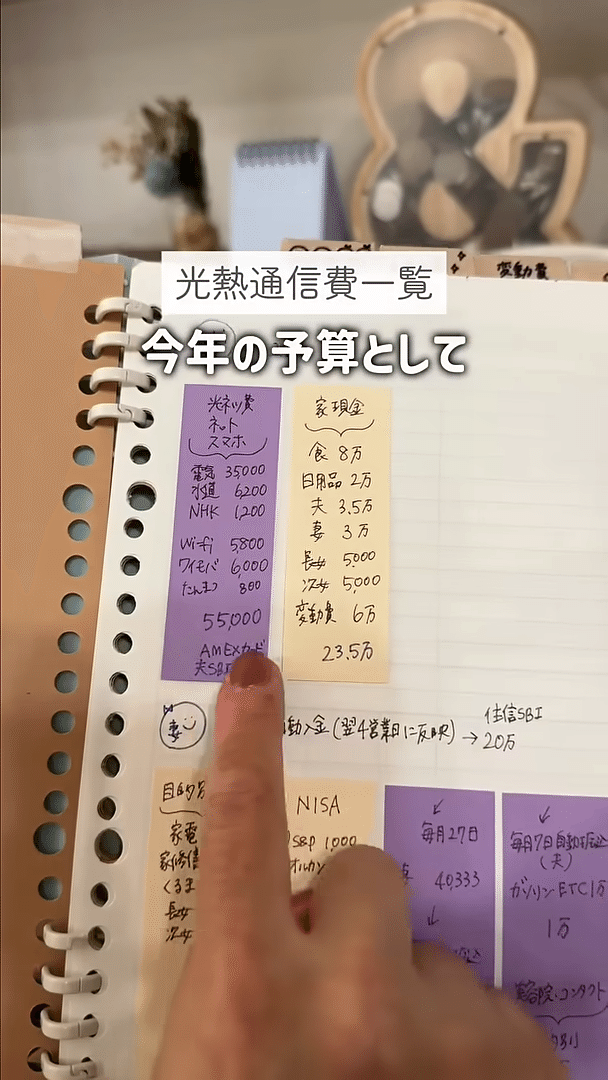 変動費
光熱通信費一覧
今年の予算として
光ネツ費
ネット
スマホ
電気 35,000
水道 6,200
NHK 1,200
Wi-Fi 5,800
ワイモバ 6,000
たんまつ 800
55,000
AMEXカード
夫SBI
家現金
食 8万
日用品 2万
夫 3.5万
妻 3万
長女 5,000
次女 5,000
変動費 6万
23.5万
妻
動入金(翌4営業日に反映)→
住信SBI
20万
目的別
家電
家修
くるま
長女
次女
NISA
S&P 1,000
オルカン
毎月27日
40,333
毎月7日自動振込
(夫)
ガソリン・ETC 1万
1万
美容院・コンタクト